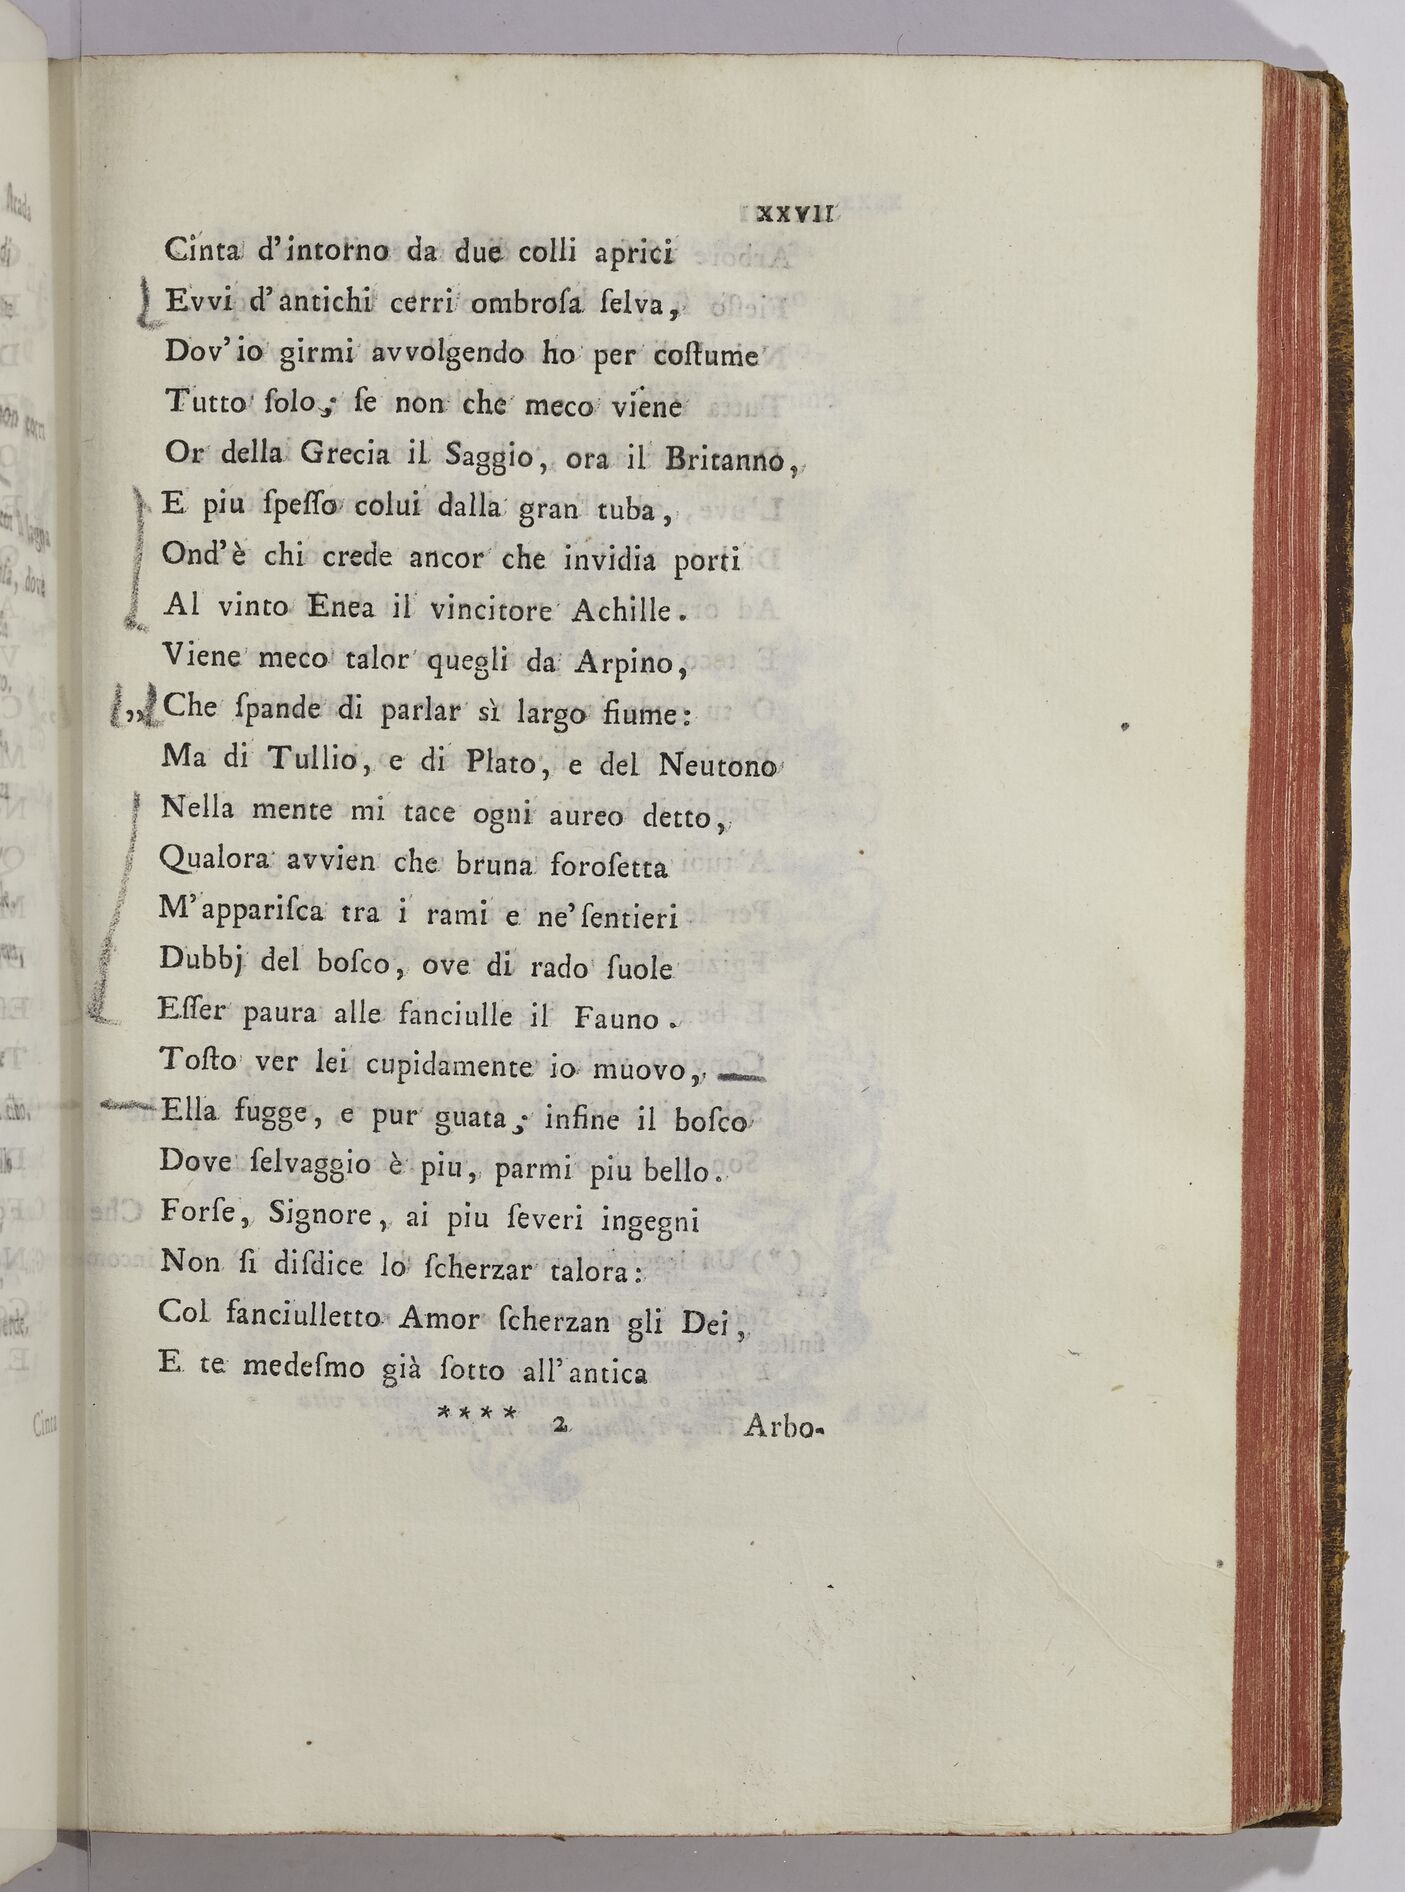 XXVII
Cinta d'intorno da due colli aprici
Evvi d'antichi cerri ombroſa ſelva,
Dov'io girmi avvolgendo ho per coſtume
Tutto ſolo; ſe non che meco viene
Or della Grecia il Saggio, ora il Britanno,
E piu ſpeſſo colui dalla gran tuba,
Ond'è chi crede ancor che invidia porti
Al vinto Enea il vincitore Achille.
Viene meco talor quegli da Arpino,
„Che ſpande di parlar sì largo fiume:
Ma di Tullio, e di Plato, e del Neutono
Nella mente mi tace ogni aureo detto,
Qualora avvien che bruna foroſetta
M'appariſca tra i rami e ne'ſentieri
Dubbj del boſco, ove di rado ſuole
Eſſer paura alle fanciulle il Fauno.
Toſto ver lei cupidamente io muovo,
Ella fugge, e pur guata; infine il boſco
Dove ſelvaggio è piu, parmi piu bello.
Forſe, Signore, ai piu ſeveri ingegni
Non ſi diſdice lo ſcherzar talora:
Col fanciulletto Amor ſcherzan gli Dei,
E te medeſmo già ſotto all'antica
**** 2 Arbo-